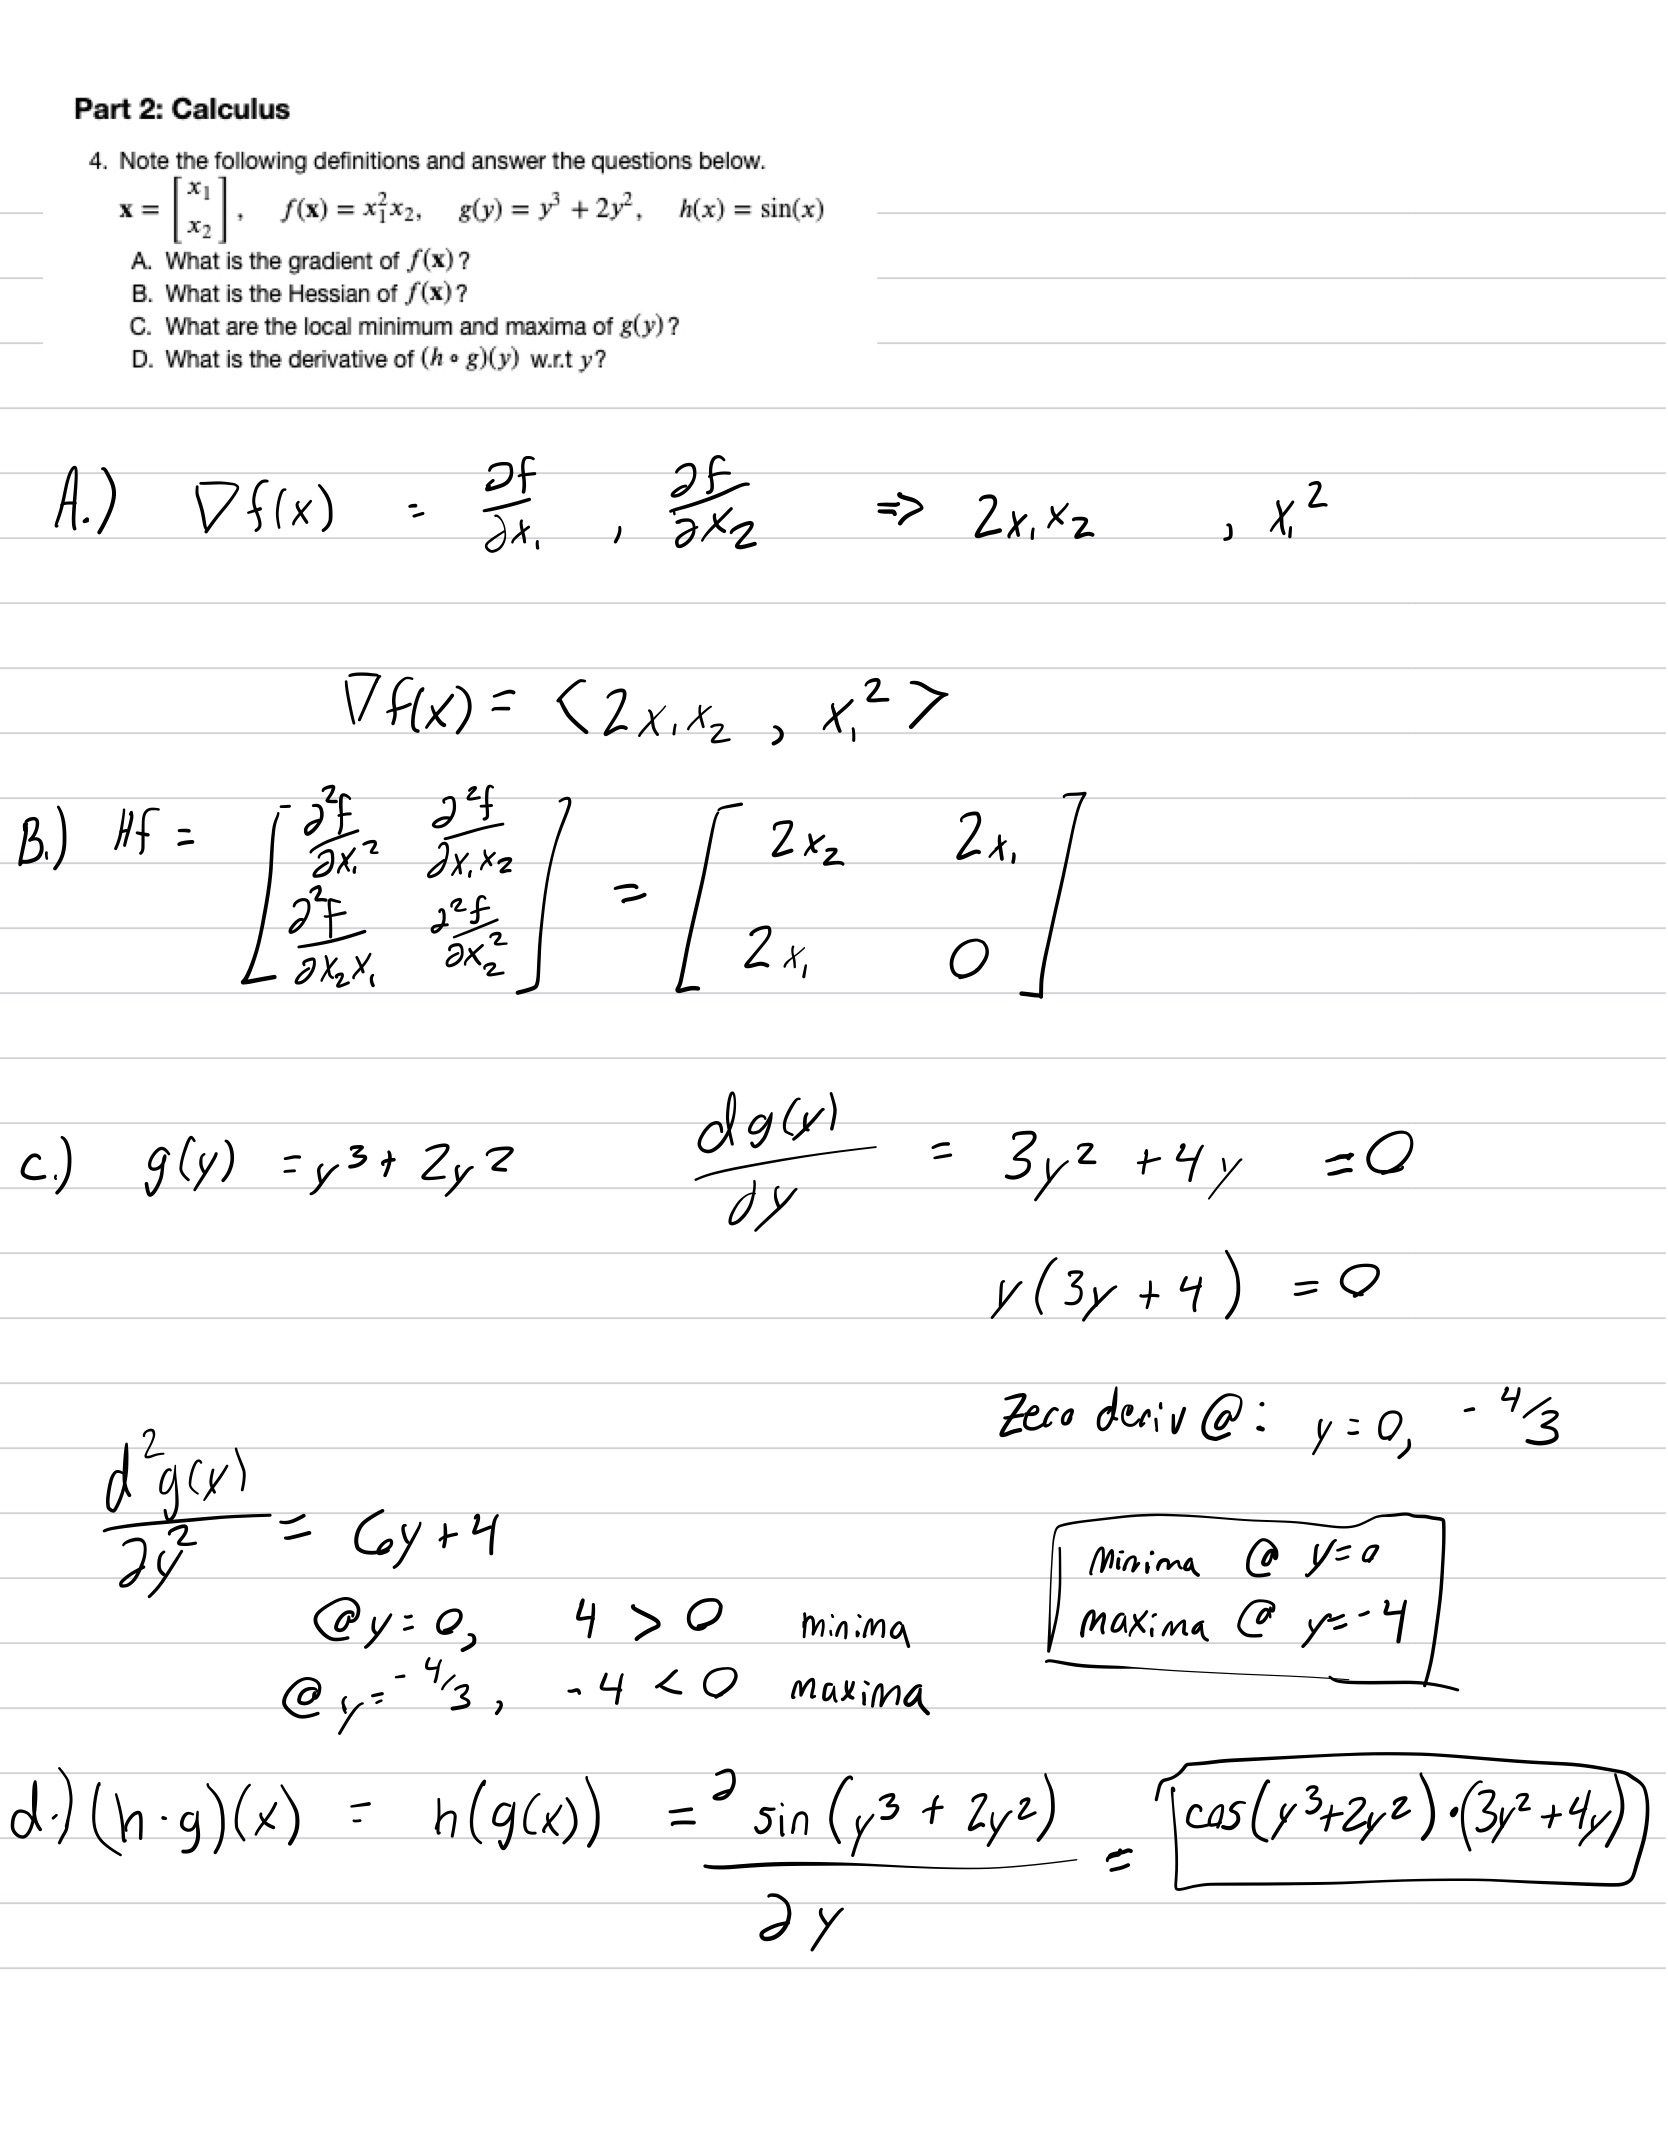 Part 2: Calculus
4. Note the following definitions and answer the questions below.
x = [x₁ x₂], f(x) = x₁²x₂, g(y) = y³ + 2y², h(x) = sin(x)
A. What is the gradient of f(x)?
B. What is the Hessian of f(x)?
C. What are the local minimum and maxima of g(y)?
D. What is the derivative of (h ∘ g)(y) w.r.t y?
A.) ∇f(x) = ∂f/∂x₁ , ∂f/∂x₂ ⇒ 2x₁x₂ , x₁²
∇f(x) = <2x₁x₂ , x₁²>
B.) Hf = [∂²f/∂x₁² ∂²f/∂x₁x₂ ∂²f/∂x₂x₁ ∂²f/∂x₂²] = [2x₂ 2x₁ 2x₁ 0]
c.) g(y) = y³ + 2y² dg(y)/dy = 3y² + 4y = 0
y(3y + 4) = 0
Zero deriv @: y = 0, -4/3
d²g(y)/∂y² = 6y + 4
Minima @ y=0
@ y = 0, 4 > 0 minima
maxima @ y=-4
@ y = -4/3, -4 < 0 maxima
d.) (h · g)(x) = h(g(x)) = ∂ sin(y³ + 2y²)/∂y = cos(y³+2y²)·(3y²+4y)